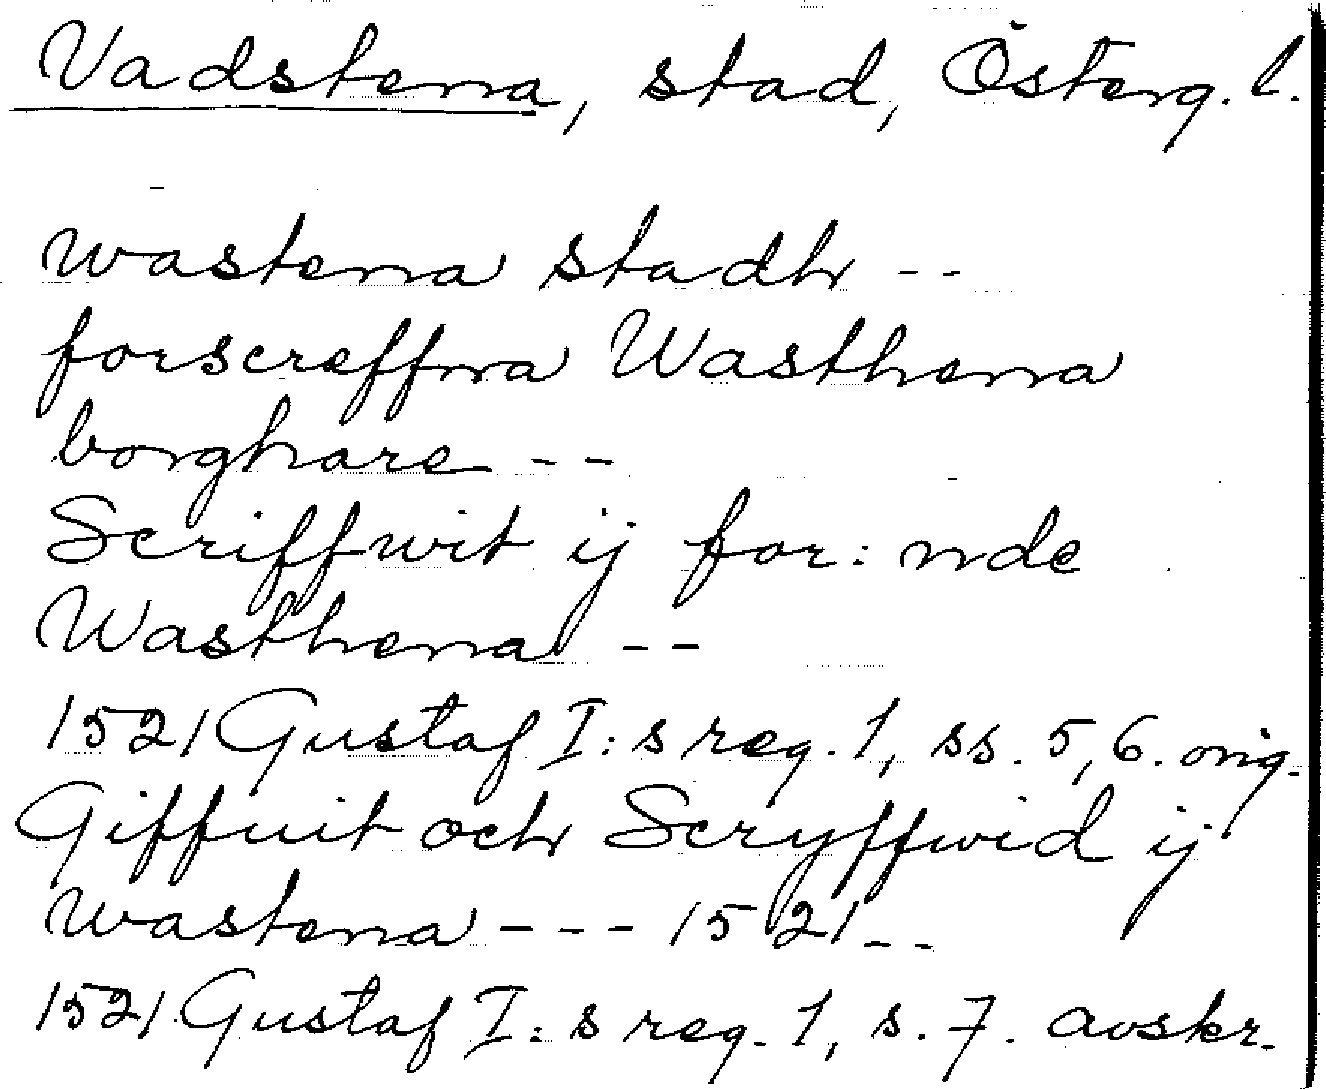 Vadstena, stad, Österg. l.
wastena stadh --
forscreffna Wasthena
borghare --
Scriffwit ij for: nde
Wasthena --
1521 Gustaf I:s reg. 1, ss. 5, 6. orig.
Giffuit och Scryffwid ij
wastena --- 1521 --
1521 Gustaf I:s reg. 1, s. 7. avskr.